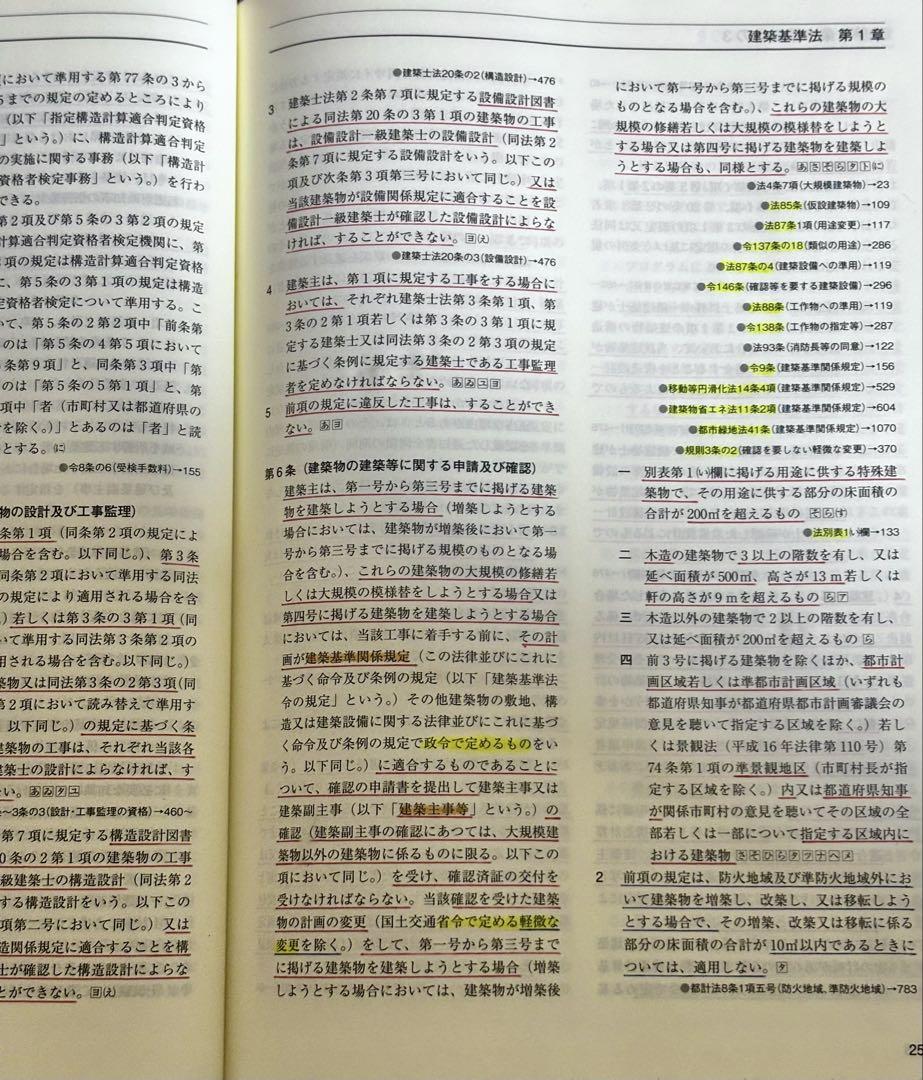 建築基準法 第1章
において準用する第77条の3から
5までの規定の定めるところにより
（以下「指定構造計算適合判定資格
」という。）に、構造計算適合判定
の実施に関する事務（以下「構造計
資格者検定事務」という。）を行わ
できる。
第2項及び第5条の3第2項の規定
計算適合判定資格者検定機関に、第
項の規定は構造計算適合判定資格
に、第5条の3第1項の規定は構造
定資格者検定について準用する。こ
いて、第5条の2第2項中「前条第
のは「第5条の4第5項において
条第9項」と、同条第3項中「第
のは「第5条の5第1項」と、第
項中「者（市町村又は都道府県の
を除く。）」とあるのは「者」と読
とする。㈡
●令8条の6（受検手数料）→155
物の設計及び工事監理）
条第1項（同条第2項の規定によ
場合を含む。以下同じ。）、第3条
条第2項において準用する同法
の規定により適用される場合を含
）若しくは第3条の3第1項（同
いて準用する同法第3条第2項の
用される場合を含む。以下同じ。）
築物又は同法第3条の2第3項（同
第2項において読み替えて準用す
以下同じ。）の規定に基づく条
建築物の工事は、それぞれ当該各
建築士の設計によらなければ、す
い。あゐタユ
～3条の3（設計・工事監理の資格）→460～
第7項に規定する構造設計図書
0条の2第1項の建築物の工事
級建築士の構造設計（同法第2
する構造設計をいう。以下この
項第二号において同じ。）又は
造関係規定に適合することを構
士が確認した構造設計によらな
とができない。ヨ(え)
●建築士法20条の2（構造設計）→476
3 建築士法第2条第7項に規定する設備設計図書
による同法第20条の3第1項の建築物の工事
は、設備設計一級建築士の設備設計（同法第2
条第7項に規定する設備設計をいう。以下この
項及び次条第3項第三号において同じ。）又は
当該建築物が設備関係規定に適合することを設
備設計一級建築士が確認した設備設計によらな
ければ、することができない。ヨ(え)
●建築士法20条の3（設備設計）→476
4 建築主は、第1項に規定する工事をする場合に
おいては、それぞれ建築士法第3条第1項、第
3条の2第1項若しくは第3条の3第1項に規
定する建築士又は同法第3条の2第3項の規定
に基づく条例に規定する建築士である工事監理
者を定めなければならない。あゐユヨ
5 前項の規定に違反した工事は、することができ
ない。あヨ
第6条（建築物の建築等に関する申請及び確認）
建築主は、第一号から第三号までに掲げる建築
物を建築しようとする場合（増築しようとする
場合においては、建築物が増築後において第一
号から第三号までに掲げる規模のものとなる場
合を含む。）、これらの建築物の大規模の修繕若
しくは大規模の模様替をしようとする場合又は
第四号に掲げる建築物を建築しようとする場合
においては、当該工事に着手する前に、その計
画が建築基準関係規定（この法律並びにこれに
基づく命令及び条例の規定（以下「建築基準法
令の規定」という。）その他建築物の敷地、構
造又は建築設備に関する法律並びにこれに基づ
く命令及び条例の規定で政令で定めるものをい
う。以下同じ。）に適合するものであることに
ついて、確認の申請書を提出して建築主事又は
建築副主事（以下「建築主事等」という。）の
確認（建築副主事の確認にあつては、大規模建
築物以外の建築物に係るものに限る。以下この
項において同じ。）を受け、確認済証の交付を
受けなければならない。当該確認を受けた建築
物の計画の変更（国土交通省令で定める軽微な
変更を除く。）をして、第一号から第三号まで
に掲げる建築物を建築しようとする場合（増築
しようとする場合においては、建築物が増築後
において第一号から第三号までに掲げる規模の
ものとなる場合を含む。）、これらの建築物の大
規模の修繕若しくは大規模の模様替をしようと
する場合又は第四号に掲げる建築物を建築しよ
うとする場合も、同様とする。
●法4条7項（大規模建築物）→23
●法85条（仮設建築物）→109
●法87条1項（用途変更）→117
●令137条の18（類似の用途）→286
●法87条の4（建築設備への準用）→119
●令146条（確認等を要する建築設備）→296
●法88条（工作物への準用）→119
●令138条（工作物の指定等）→287
●法93条（消防長等の同意）→122
●令9条（建築基準関係規定）→156
●移動等円滑化法14条4項（建築基準関係規定）→529
●建築物省エネ法11条2項（建築基準関係規定）→604
●都市緑地法41条（建築基準関係規定）→1070
●規則3条の2（確認を要しない軽微な変更）→370
一 別表第1(い)欄に掲げる用途に供する特殊建
築物で、その用途に供する部分の床面積の
合計が200㎡を超えるもの
●法別表1い欄→133
二 木造の建築物で3以上の階数を有し、又は
延べ面積が500㎡、高さが13m若しくは
軒の高さが9mを超えるもの
三 木造以外の建築物で2以上の階数を有し、
又は延べ面積が200㎡を超えるもの
四 前3号に掲げる建築物を除くほか、都市計
画区域若しくは準都市計画区域（いずれも
都道府県知事が都道府県都市計画審議会の
意見を聴いて指定する区域を除く。）若し
くは景観法（平成16年法律第110号）第
74条第1項の準景観地区（市町村長が指
定する区域を除く。）内又は都道府県知事
が関係市町村の意見を聴いてその区域の全
部若しくは一部について指定する区域内に
おける建築物
2 前項の規定は、防火地域及び準防火地域外にお
いて建築物を増築し、改築し、又は移転しよう
とする場合で、その増築、改築又は移転に係る
部分の床面積の合計が10㎡以内であるときに
ついては、適用しない。タ
●都計法8条1項五号（防火地域、準防火地域）→783
25